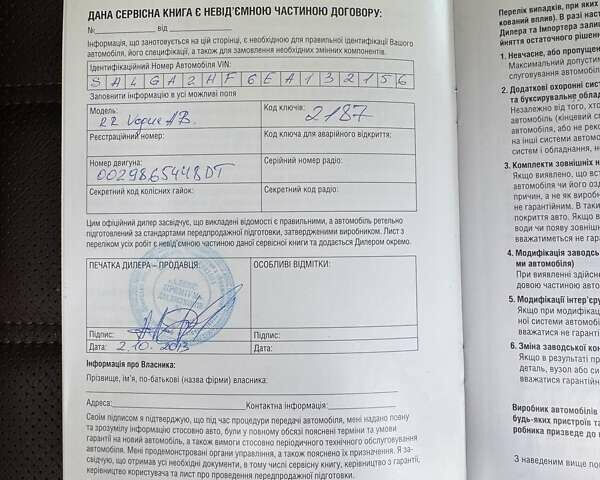 ДАНА СЕРВІСНА КНИГА Є НЕВІД'ЄМНОЮ ЧАСТИНОЮ ДОГОВОРУ:
№ від
Інформація, що занотовується на цій сторінці, є необхідною для правильної ідентифікації Вашого
автомобіля, його специфікації, а також для замовлення необхідних змінних компонентів.
Ідентифікаційний Номер Автомобіля VIN:
SALGA2HF6EA132156
Заповнити інформацію в усі можливі поля
Модель: RR Vogue AB.
Код ключів: 2187
Реєстраційний номер:
Код ключа для аварійного відкриття:
Номер двигуна: 0029865448DT
Серійний номер радіо:
Секретний код колісних гайок:
Секретний код радіо:
Цим офіційний дилер засвідчує, що викладені відомості є правильними, а автомобіль ретельно
підготовлений за стандартами передпродажної підготовки, затвердженими виробником. Лист з
переліком усіх робіт є невід'ємною частиною даної сервісної книги та додається Дилером окремо.
ПЕЧАТКА ДИЛЕРА – ПРОДАВЦЯ:
ОСОБЛИВІ ВІДМІТКИ:
Підпис:
Підпис:
Дата: 2.10.2013
Дата:
Інформація про Власника:
Прізвище, ім'я, по-батькові (назва фірми) власника:
Адреса: Контактна інформація:
Своїм підписом я підтверджую, що під час процедури передачі автомобіля, мені надано повну
та зрозумілу інформацію стосовно авто, були у повному обсязі пояснені терміни та умови
гарантії на новий автомобіль, а також вимоги стосовно періодичного технічного обслуговування
автомобіля. Мені продемонстровані органи управління, а також пояснено їх призначення. Я за-
свідчую, що отримав усі необхідні документи, в тому числі сервісну книгу, керівництво з гарантії,
керівництво користувача та лист про проведення передпродажної підготовки.
Перелік випадків, при яких
кований вплив). В разі наст
Дилера та Імпортера залиш
йняття остаточного рішення
1. Невчасне, або пропущен
Максимальний допустим
слуговування автомобіля
2. Додаткові охоронні сист
та буксирувальне облад
Незалежно від того, хто
автомобіль (кінцевий с
автомобіль, або не реко
на інші системи автомоб
систем і обладнання, не
3. Комплекти зовнішніх н
Якщо виявлено, що вст
автомобіля чи його озд
причин, а не як виробн
не гарантійним. В таки
покриття авто. Якщо в
води чи появу зовнішн
вважатиметься не гара
4. Модифікація заводсь
ми автомобіля)
При виявленні здійснен
довою частиною автом
5. Модифікації інтер'єру
Якщо при модифікац
ної системи автомобі
вважатися не гаранті
6. Зміна заводської кон
Якщо в результаті пр
деталь, вузол або си
вважатися гарантійн
Виробник автомобілів
будь-яких пристроїв та
робника призведе до н
З наведеним вище поп